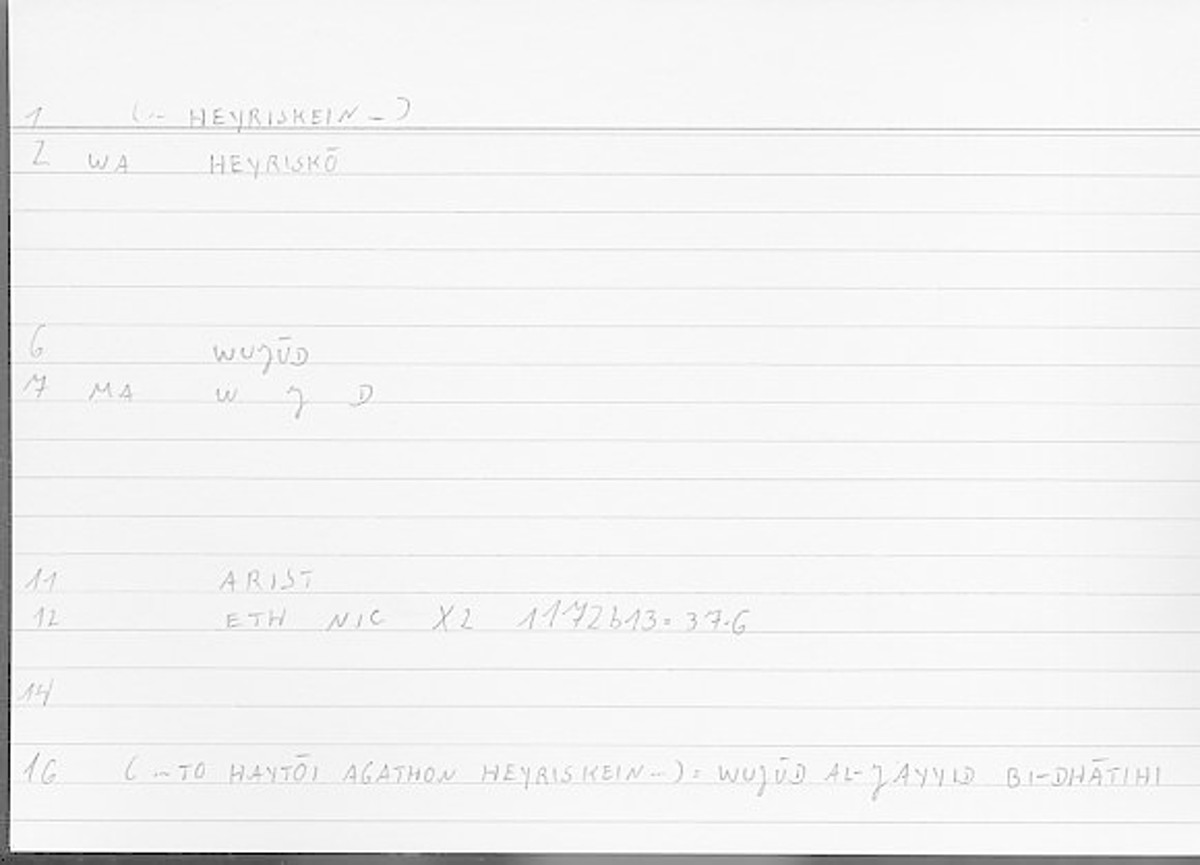 1 (.. HEYRISKEIN -)
2 WA HEYRISKŌ
6 WUJŪD
7 MA W J D
11 ARIST
12 ETH NIC X2 1172b13 = 37.6
14
16 (...TO HAYTŌI AGATHON HEYRISKEIN...) = WUJŪD AL-JAYYID BI-DHĀTIHI